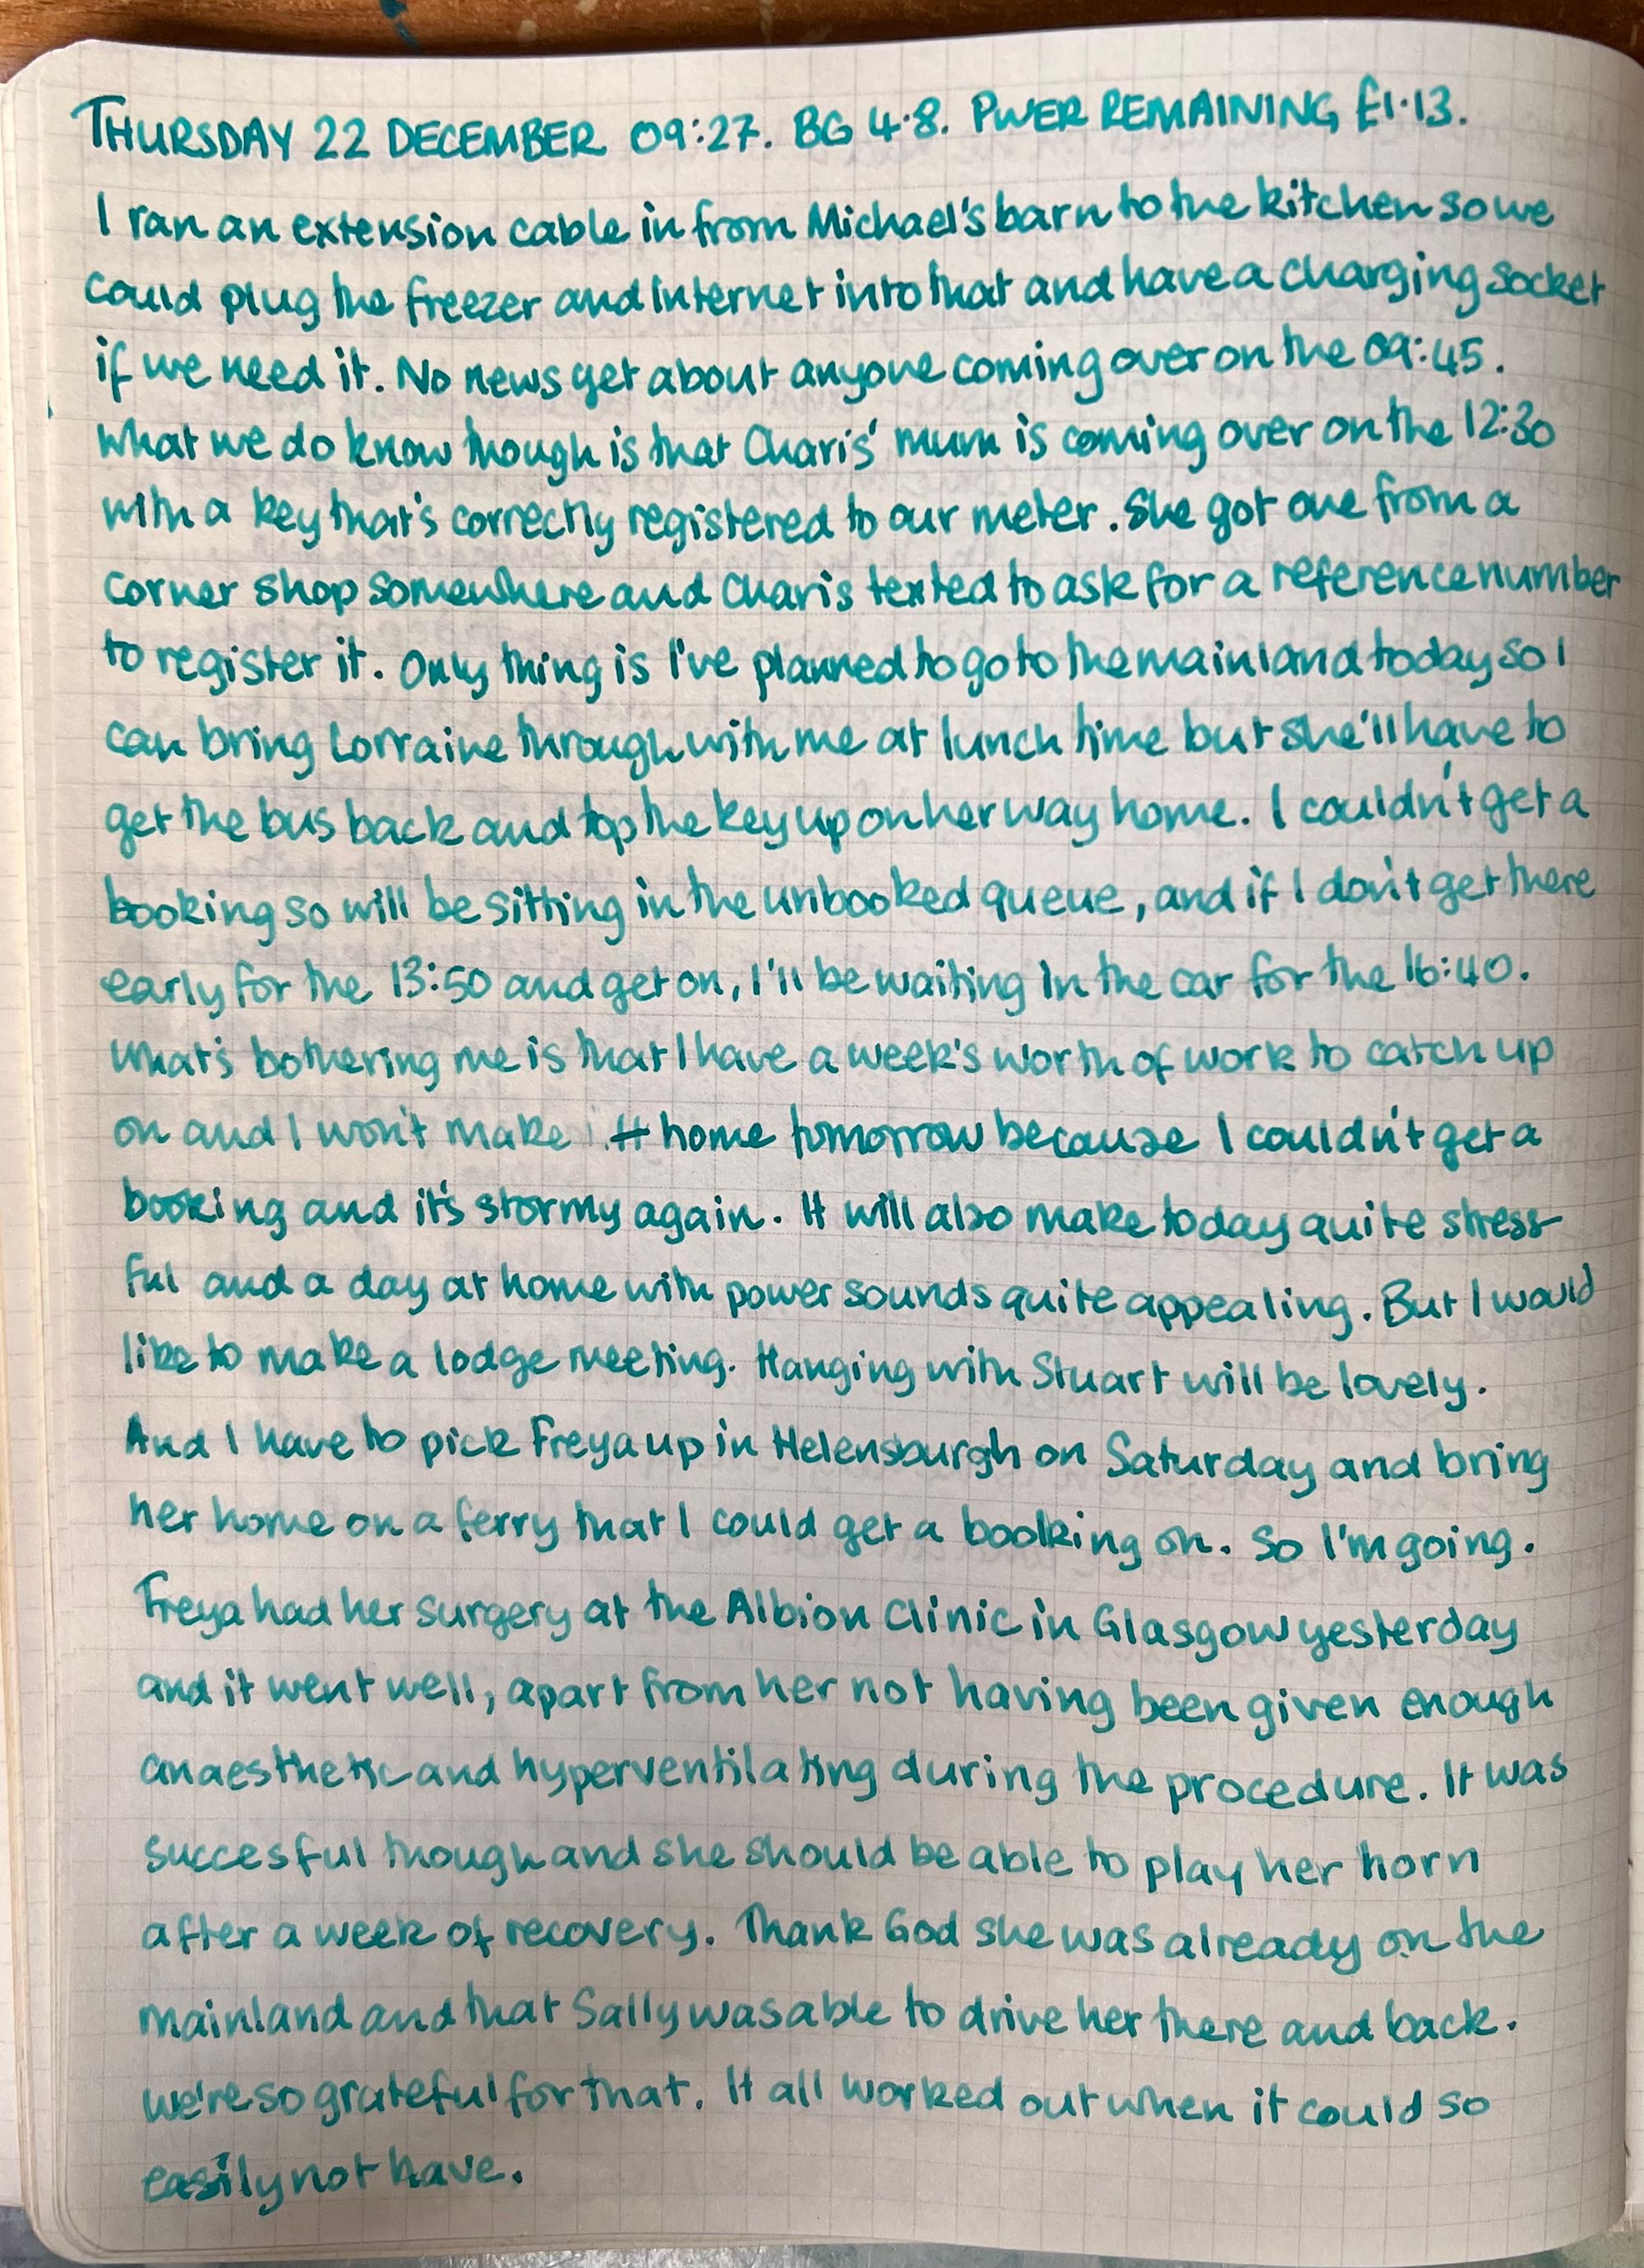 THURSDAY 22 DECEMBER 09:27. BG 4.8. PWER REMAINING £1.13.
I ran an extension cable in from Michael's barn to the kitchen so we
could plug the freezer and internet into that and have a charging socket
if we need it. No news yet about anyone coming over on the 09:45.
What we do know though is that Charis' mum is coming over on the 12:30
with a key that's correctly registered to our meter. She got one from a
corner shop somewhere and Charis texted to ask for a reference number
to register it. Only thing is I've planned to go to the mainland today so I
can bring Lorraine through with me at lunch time but she'll have to
get the bus back and top the key up on her way home. I couldn't get a
booking so will be sitting in the unbooked queue, and if I don't get there
early for the 13:50 and get on, I'll be waiting in the car for the 16:40.
What's bothering me is that I have a week's worth of work to catch up
on and I won't make it home tomorrow because I couldn't get a
booking and it's stormy again. It will also make today quite stress-
ful and a day at home with power sounds quite appealing. But I would
like to make a lodge meeting. Hanging with Stuart will be lovely.
And I have to pick Freya up in Helensburgh on Saturday and bring
her home on a ferry that I could get a booking on. So I'm going.
Freya had her surgery at the Albion Clinic in Glasgow yesterday
and it went well, apart from her not having been given enough
anaesthetic and hyperventilating during the procedure. It was
succesful though and she should be able to play her horn
after a week of recovery. Thank God she was already on the
mainland and that Sally was able to drive her there and back.
We're so grateful for that. It all worked out when it could so
easily not have.